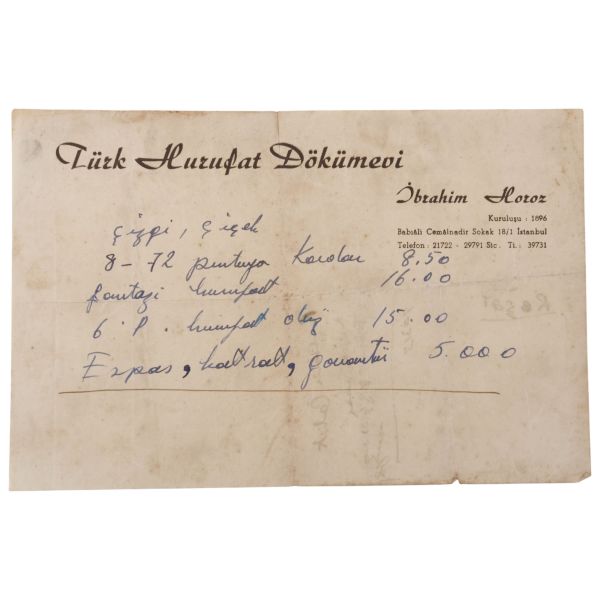 Türk Hurufat Dökümevi
İbrahim Horoz
Kuruluşu : 1896
Babıâli Cemâlnadir Sokak 18/1 İstanbul
Telefon : 21722 - 29791 Sic. Ti. : 39731
Çizgi, Çiçek
8-72 puntuya Kadar 8.50
fantazi hurufat 16.00
6 P. hurufat düz 15.00
Espas, katrat, 5.000